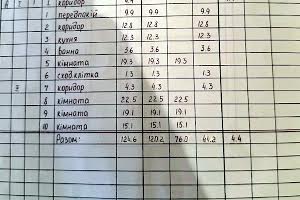 1 передпокій 9.9 9.9 9.9
2 коридор 12.8 12.8 12.8
3 кухня 12.3 12.3 12.3
4 ванна 3.6 3.6 3.6
5 кімната 19.3 19.3 19.3
6 сход.клітка 1.3 1.3 1.3
7 коридор 4.3 4.3 4.3
8 кімната 22.5 22.5 22.5
9 кімната 19.1 19.1 19.1
10 кімната 15.1 15.1 15.1
Разом: 124.6 120.2 76.0 44.2 4.4